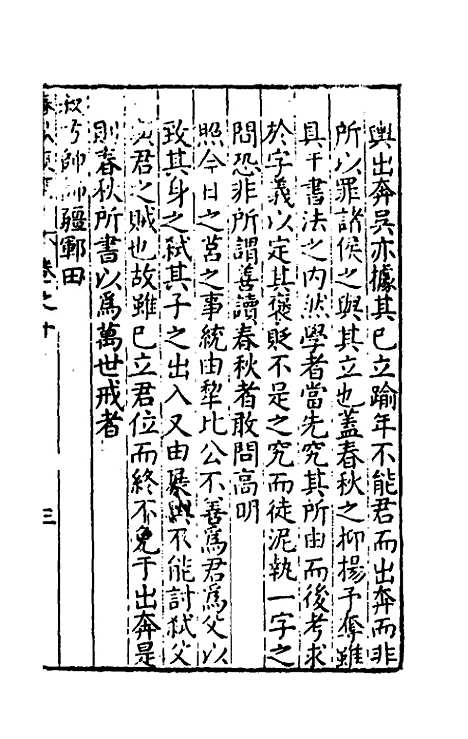 輿出奔吳亦據其已立踰年不能君而出奔而非
所以罪諸侯之與其立也蓋春秋之抑揚予奪雖
具于書法之內然學者當先究其所由而後考求
於字義以定其褒貶不足之究而徒泥執一字之
問恐非所謂善讀春秋者敢問高明
照今日之莒之事統由犂比公不善爲君爲父以
致其身之弒其子之出入又由展輿不能討弒父
君之賊也故雖已立君位而終不免于出奔是
則春秋所書以爲萬世戒者
叔弓帥師疆鄆田
卷之十
三